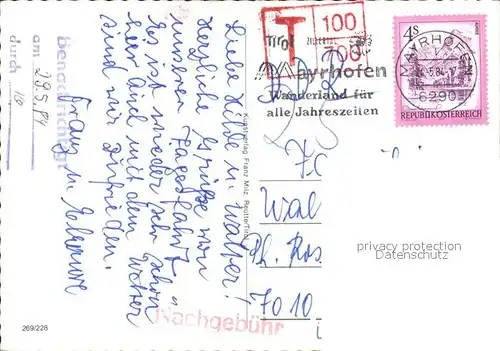 Liebe Hilde u. Walter!
Herzliche Grüße von
unserer Tagesfahrt.
Es ist wieder sehr schön
hier und mit dem Wetter
sind wir zufrieden.
Franz u.
Benachrichtigt
am 29.5.84
durch
Kunstverlag Franz Milz, Reutte/Tirol
269/228
Nachgebühr
T 100
700
Tirol
Mayrhofen
Wanderland für
alle Jahreszeiten
MAYRHOFEN
.5.84
6290
4 S
REPUBLIK ÖSTERREICH
Wal
Ph. Ros
7010
privacy protection
Datenschutz